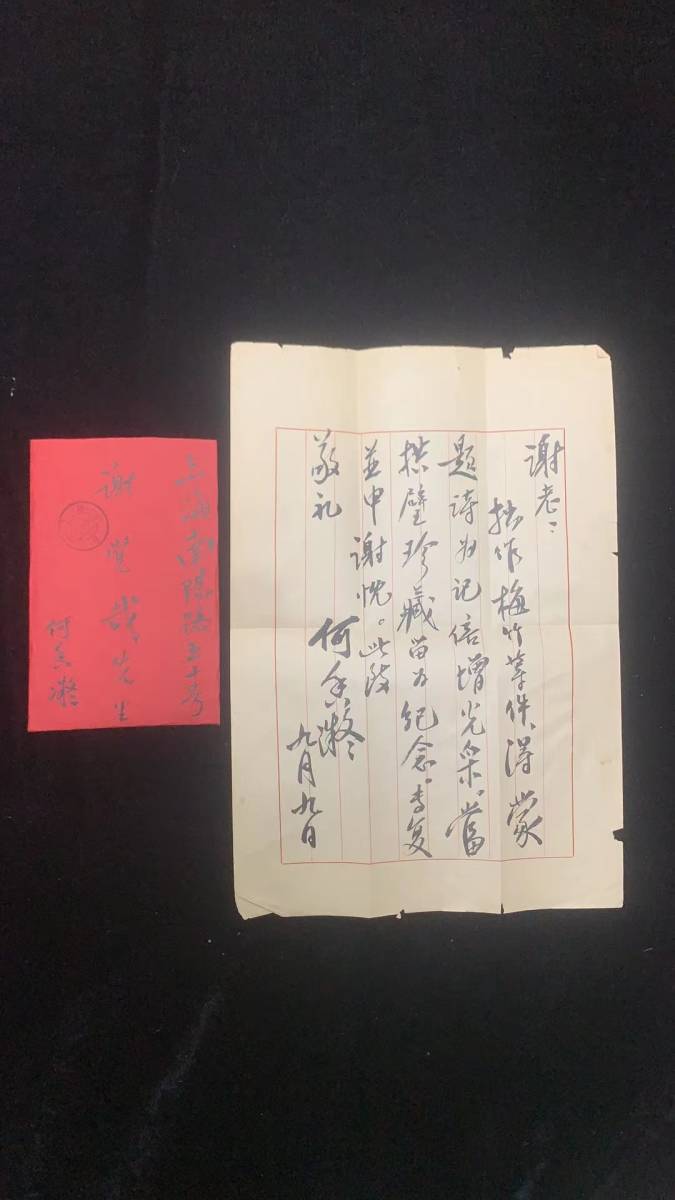 谢老：
拙作梅竹等件，得蒙
题诗为记倍增光采，当
拱璧珍藏留为纪念。专复
并申谢忱。此致
敬礼
何香凝
九月九日
上海南 路五十号
谢觉哉先生
何香凝